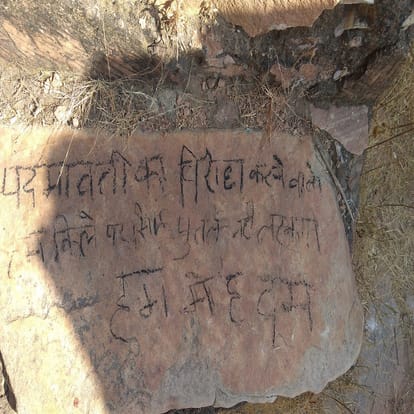 पदमावती का विरोध करने वाले
हम किले पर सिर्फ पुतले नही लटकाते
हम मे ह दम